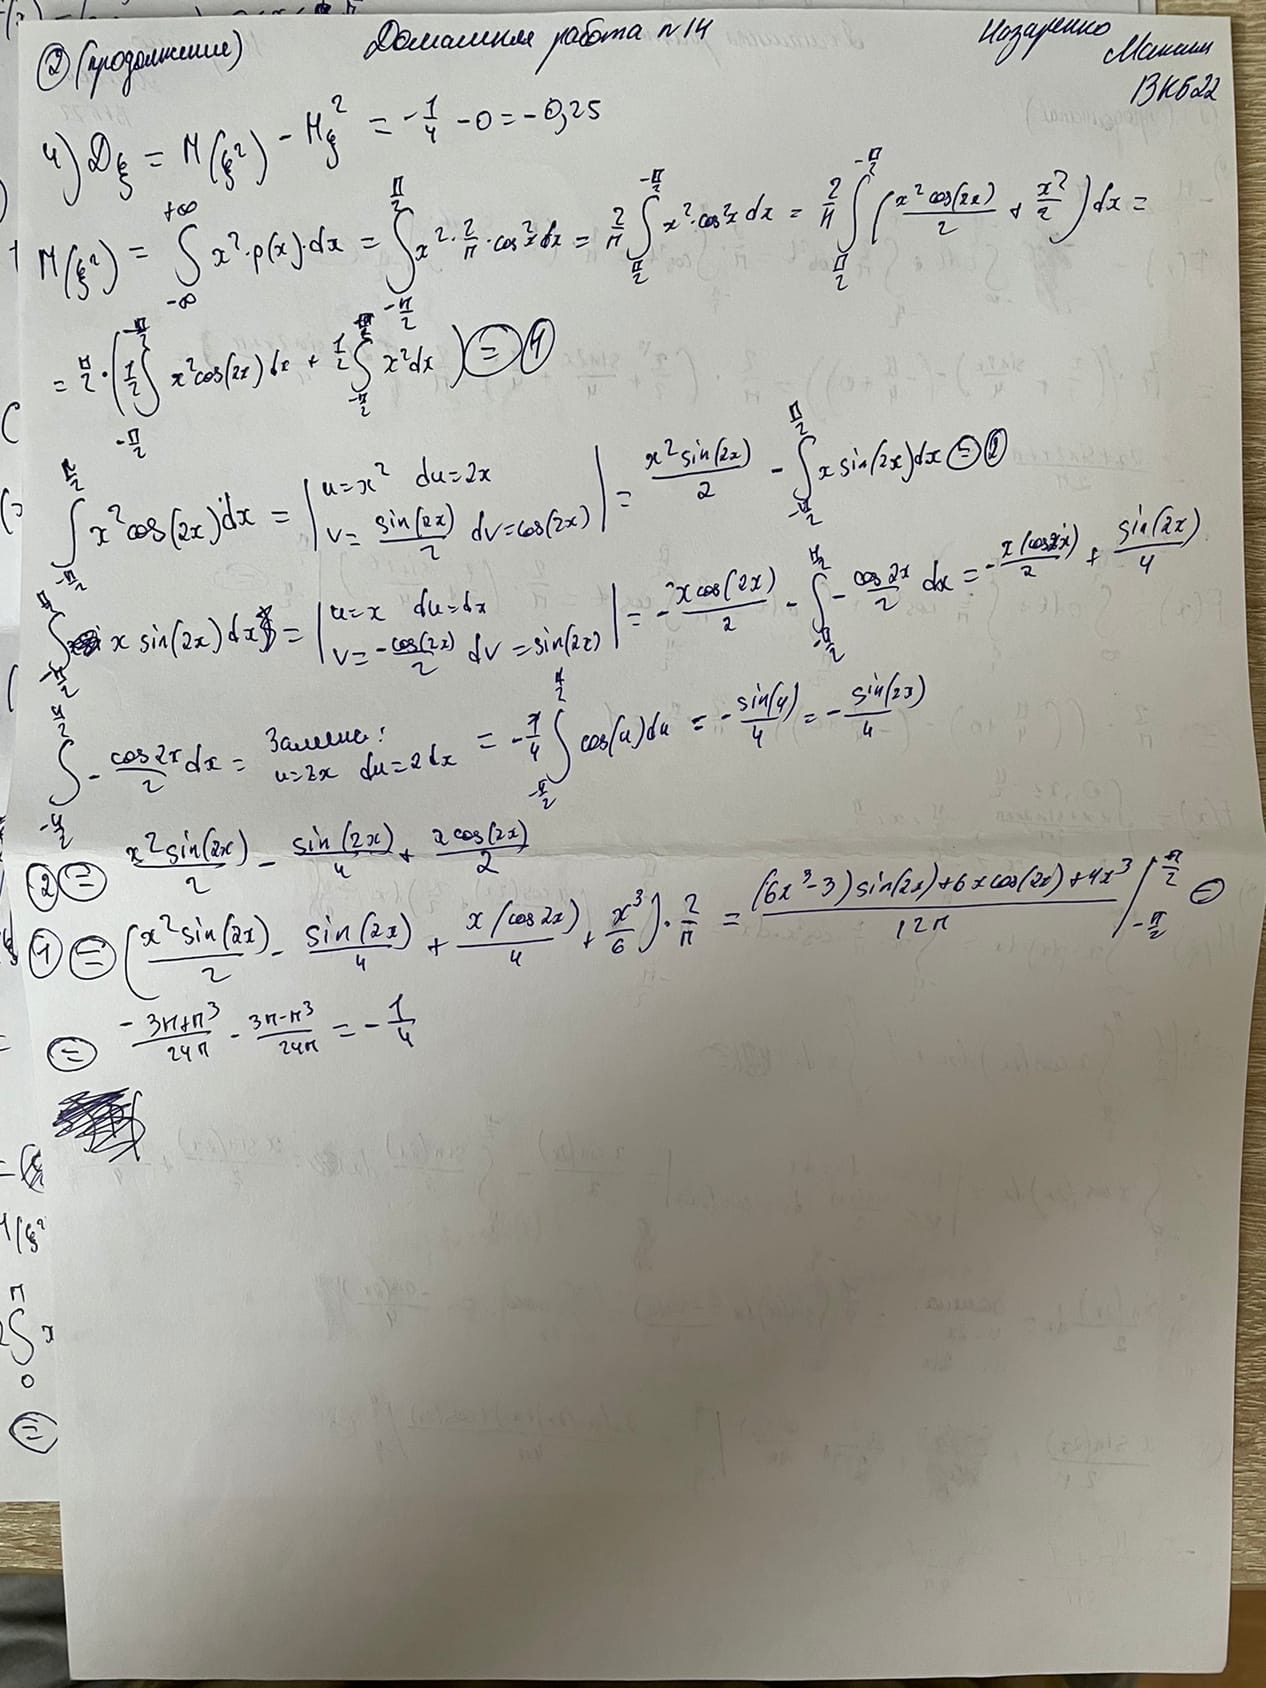 ② (продолжение) Домашняя работа №14 Назаренко
Максим
ВКБ22
4) Dξ = M(ξ²) - Mξ² = -1/4 - 0 = -0,25
M(ξ²) = ∫_{-∞}^{+∞} x²·p(x)·dx = ∫_{-π/2}^{π/2} x²·2/π·cos²x dx = 2/π ∫_{π/2}^{-π/2} x²·cos²x dx = 2/π ∫_{π/2}^{-π/2} (x² cos(2x)/2 + x²/2) dx =
= π/2 · (1/2 ∫_{-π/2}^{-π/2} x² cos(2x) dx + 1/2 ∫_{-π/2}^{π/2} x² dx) ⊜ ①
∫_{-π/2}^{π/2} x² cos(2x) dx = | u = x² du = 2x v = sin(2x)/2 dv = cos(2x) | = x² sin(2x)/2 - ∫_{-π/2}^{π/2} x sin(2x) dx ⊜ ②
∫_{-π/2}^{π/2} x sin(2x) dx = | u = x du = dx v = -cos(2x)/2 dv = sin(2x) | = -x cos(2x)/2 - ∫_{-π/2}^{π/2} -cos2x/2 dx = -x(cos2x)/2 + sin(2x)/4
∫_{-π/2}^{π/2} -cos2x/2 dx = Замена: u = 2x du = 2dx = -1/4 ∫_{-π/2}^{π/2} cos(u) du = -sin(u)/4 = -sin(2x)/4
② ⊜ x² sin(2x)/2 - sin(2x)/4 + x cos(2x)/2
① ⊜ (x² sin(2x)/2 - sin(2x)/4 + x(cos2x)/4 + x³/6)·2/π = (6x³-3) sin(2x) + 6x cos(2x) + 4x³/12π |_{-π/2}^{π/2} ⊜
⊜ -3π+π³/24π - 3π-π³/24π = -1/4